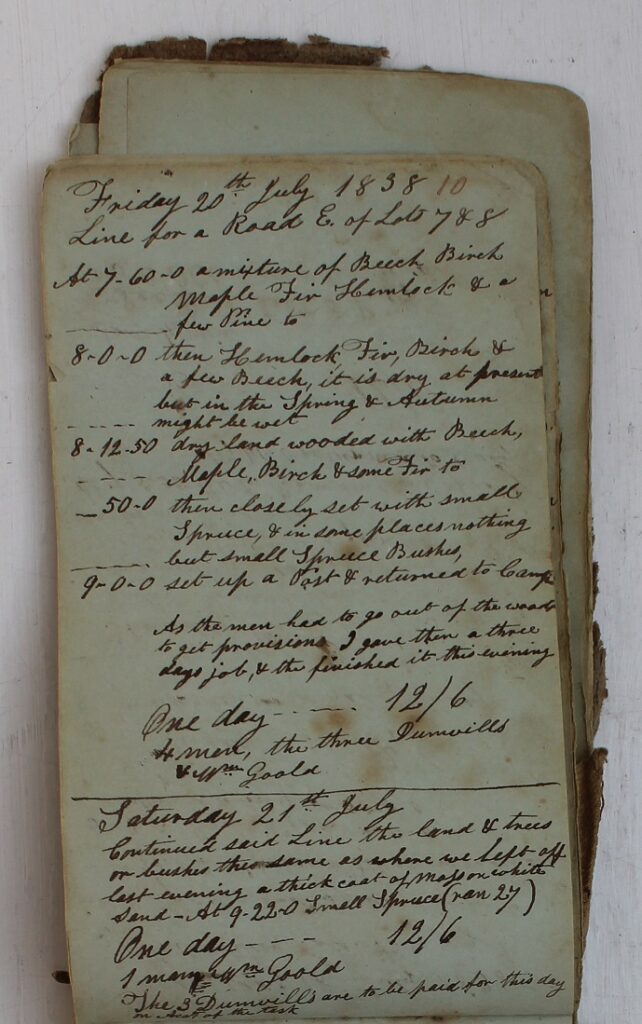 Friday 20th July 1838 10
Line for a Road E. of Lots 7 & 8
At 7-60-0 a mixture of Beech Birch
Maple Fir Hemlock & a
few Pine to
8-0-0 then Hemlock, Fir, Birch &
a few Beech, it is dry at present
but in the Spring & Autumn
might be wet
8-12-50 dry land wooded with Beech,
Maple, Birch & some Fir to
50-0 then closely set with small
Spruce, & in some places nothing
but small Spruce Bushes,
9-0-0 set up a Post & returned to Camp
As the men had to go out of the woods
to get provisions I gave then a three
days job, & the finished it this evening
One day - - - - 12/6
4 men, the three Dumvills
& Wm Goold
Saturday 21st July
Continued said Line the land & trees
or bushes the same as where we left off
last evening a thick coat of Moss on white
sand - At 9-22-0 Small Spruce (ran 27)
One day - - - 12/6
1 man Wm Goold
The 3 Dumvills are to be paid for this day
of the task